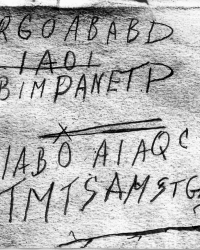 RGOABABD
IAOI
BIMPANETP
IABO AIAQC
TMTSAMSTG